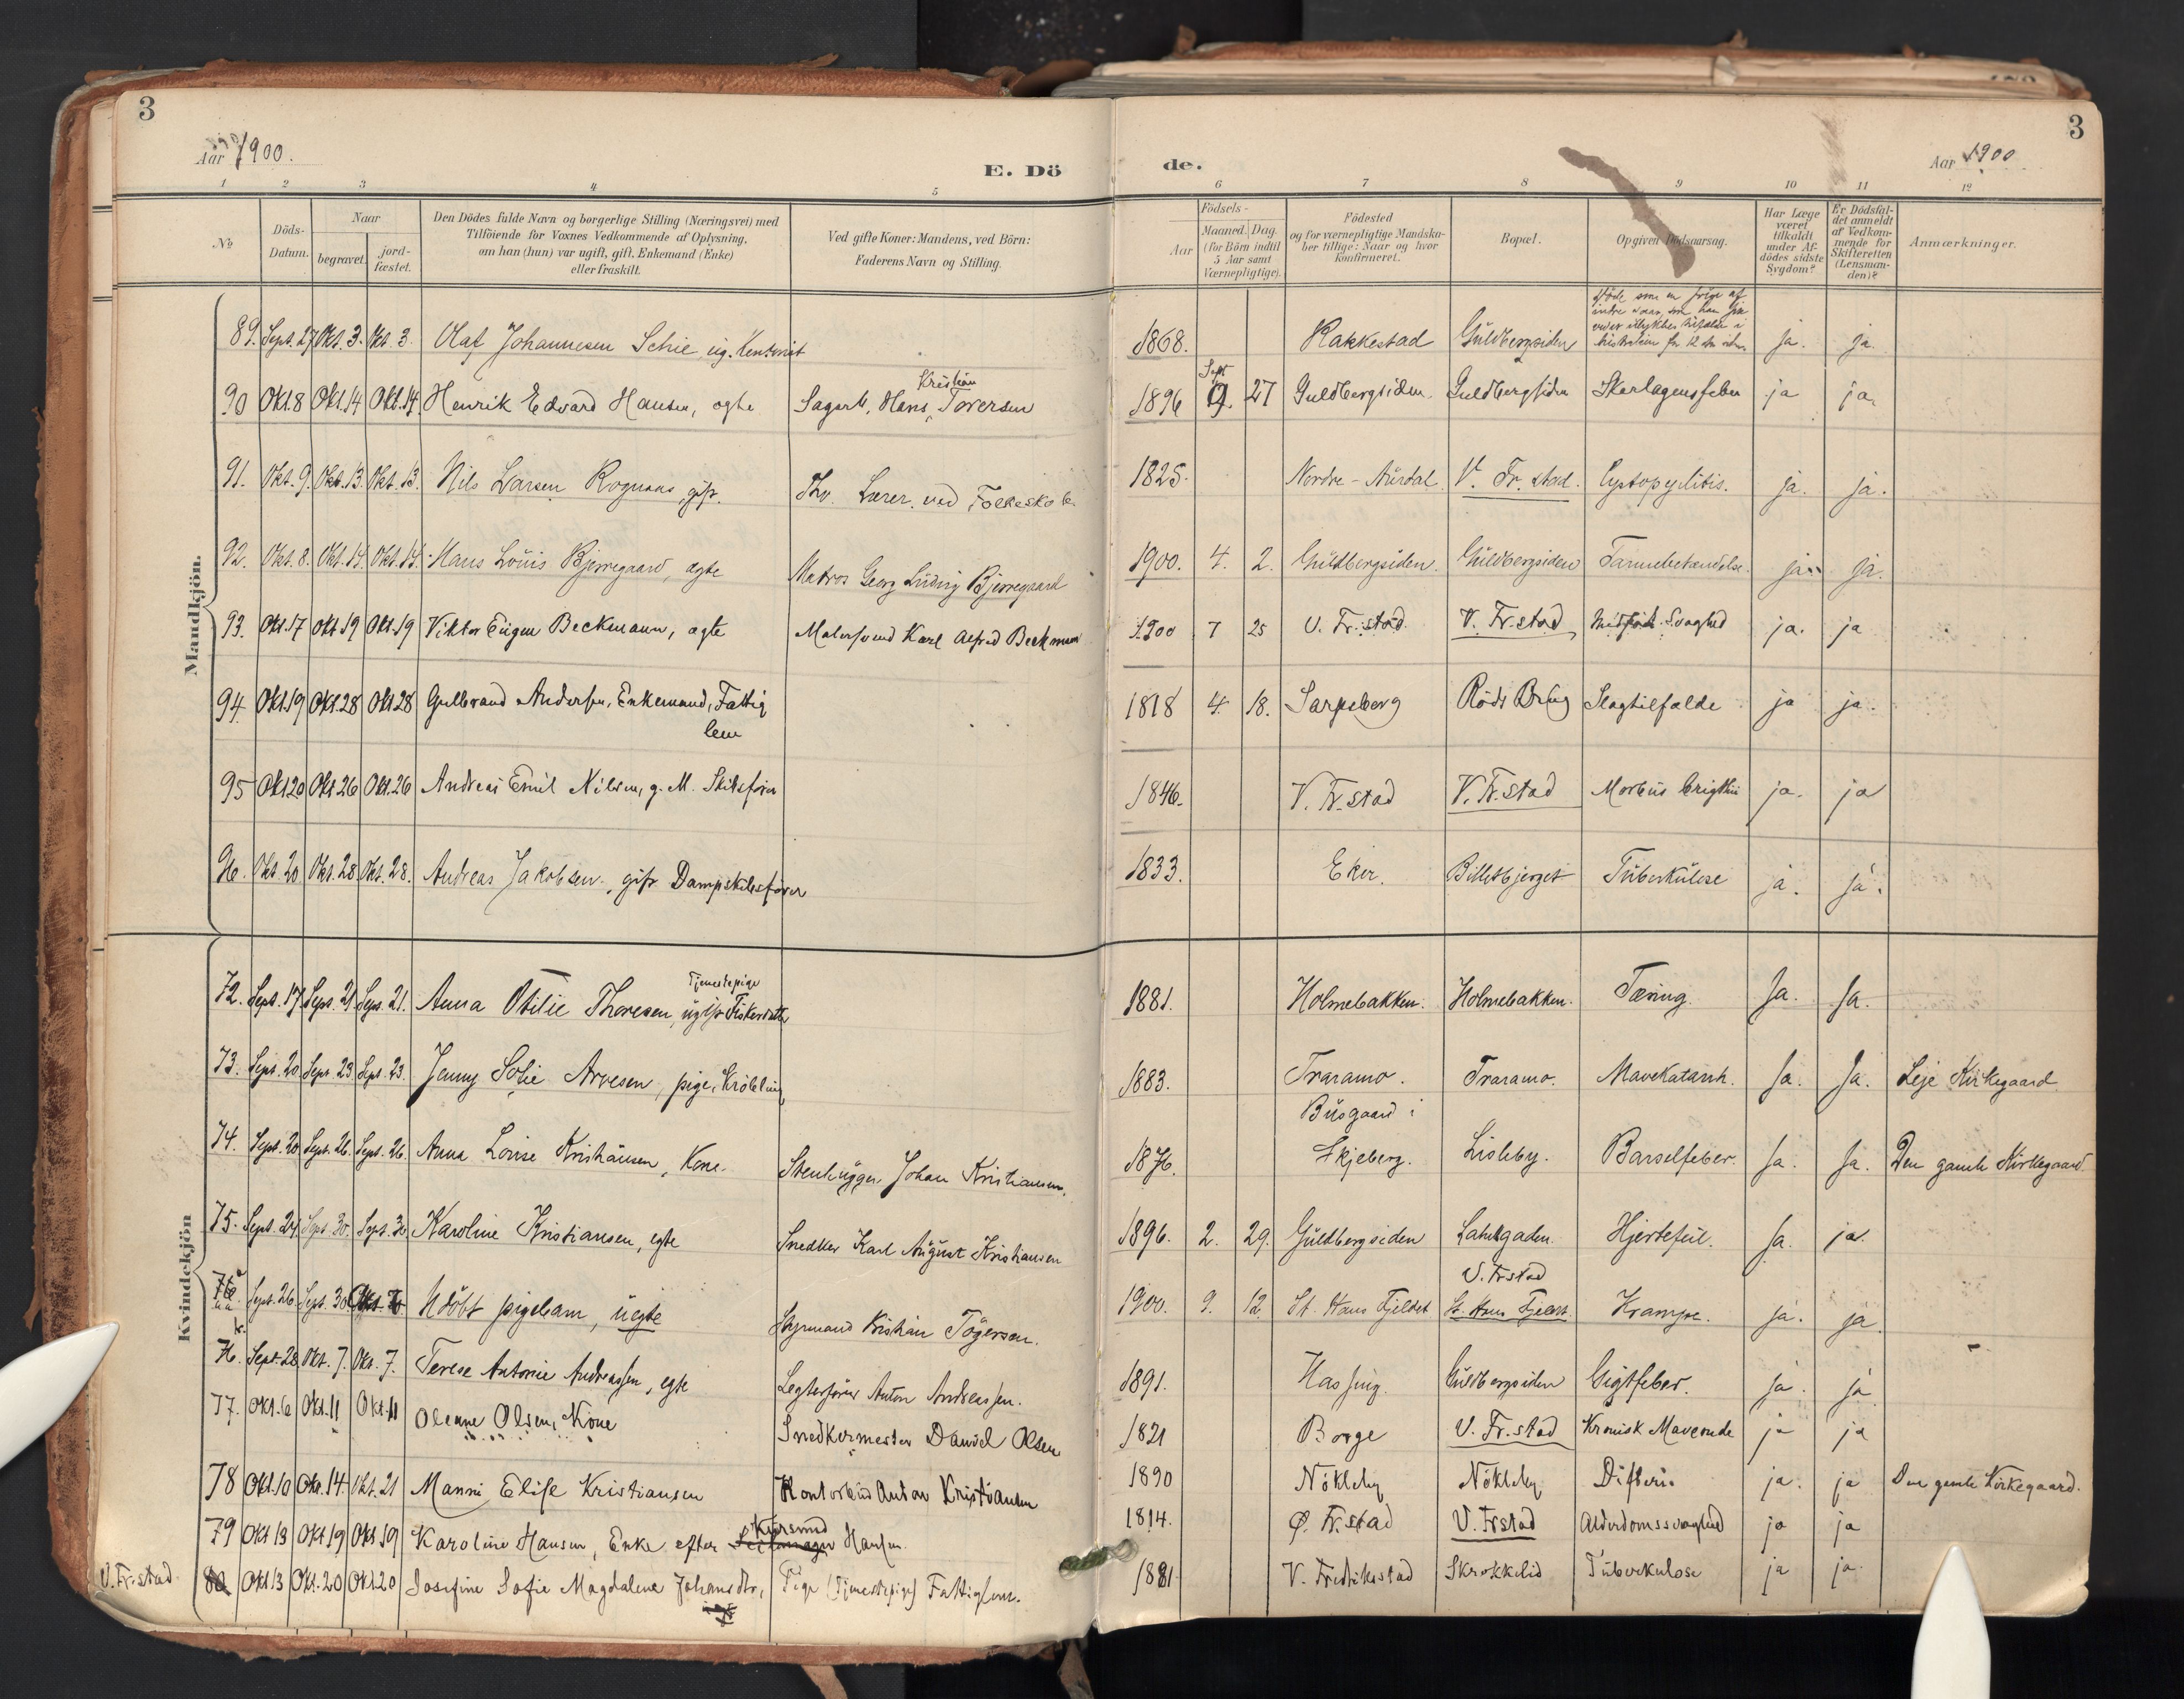 3
3
Aar 1900.
E. Dö
de.
Aar 1900
1 2 3 4 5 6 7 8 9 10 11 12
No
Döds-Datum.
Naar
begravet.
jord-fæstet.
Den Dödes fulde Navn og borgerlige Stilling (Næringsvei) med
Tilföiende for Voxnes Vedkommende af Oplysning,
om han (hun) var ugift, gift, Enkemand (Enke)
eller fraskilt.
Ved gifte Koner: Mandens, ved Börn:
Faderens Navn og Stilling.
Födsels-
Aar
Maaned. Dag.
(for Börn indtil
5 Aar samt
Værnepligtige).
Födested
og for værnepligtige Mandska-
ber tillige: Naar og hvor
Konfirmeret.
Bopæl.
Opgiven Dödsaarsag.
Har Læge
været
tilkaldt
under Af-
dödes sidste
Sygdom?
Er Dödsfal-
det anmeldt
af Vedkom-
mende for
Skifteretten
(Lensman-
den)?
Anmærkninger.
Mandkjön.
89. Sept. 27 Okt. 3. Okt. 3. Olaf Johannesen Schie, ug. 1868. Rakkestad Guldbergsiden ja. ja.
90 Okt. 8 Okt. 14 Okt. 14. Henrik Edvard Hansen, ægte Sagarb. Hans Kristian Iversen 1896 Sept 9. 27 Guldbergsiden. Guldbergsiden Skarlagensfeber ja ja.
91. Okt. 9. Okt. 13. Okt. 13. Nils Larsen Rognaas, gift. Fhv. Lærer ved Folkeskole 1825. Nordre-Aurdal V. Fr. stad. Cystopyelitis. ja. ja.
92. Okt. 8. Okt. 14. Okt. 14. Hans Louis Bjerregaard, ægte Matros Georg Ludvig Bjerregaard 1900. 4. 2. Guldbergsiden. Guldbergsiden Tarmbetændelse. ja. ja.
93. Okt. 17 Okt 19 Okt. 19 Viktor Eugen Beckmann, ægte Malersvend Karl Alfred Beckmann 1900 7 25 V. Fr. stad. V. Fr. stad Medfödt Svaghed ja. ja
94. Okt. 19 Okt. 28 Okt 28 Gulbrand Andersen, Enkemand, Fattig
lem 1818 4. 18. Sarpsborg Röds Brug Slagtilfælde ja ja.
95 Okt 20 Okt 26 Okt. 26 Andreas Emil Nilsen, g. M. Skibsförer 1846. V. Fr. stad V. Fr. stad Morbus Brigthii ja. ja
96. Okt. 20 Okt. 28 Okt. 28. Andreas Jakobsen, gift Dampskibsförer 1833. Eker. Billetbjerget Tuberkulose ja. ja.
Kvindekjön
72. Sept. 17 Sept. 21 Sept. 21. Anna Otilie Thoresen, ugift Tjenestepige Fiskerdatter 1881. Holmebakken. Holmebakken. Tæring. Ja. Ja.
73. Sept. 20 Sept. 23 Sept. 23. Jenny Sofie Arvesen, pige, Kröbling 1883. Traramo. Traramo. Mavekatarrh. Ja. Ja. Leje Kirkegaard
74. Sept. 20 Sept. 26. Sept. 26. Anna Lovise Kristiansen, Kone. Stenhugger Johan Kristiansen. 1876. Busgaard i
Skjeberg. Lisleby. Barselfeber. Ja. Ja. Den gamle Kirkegaard.
75. Sept. 24. Sept. 30. Sept. 30. Karoline Kristiansen, egte Snedker Karl August Kristiansen 1896. 2. 29. Guldbergsiden Lahllegaden. Hjertefeil. Ja. ja.
76 a Sept. 26. Sept. 30. Udöbt pigebarn, uegte Styrmand Kristian Tögersen. 1900. 9. 12. St. Hans Fjeldet V. Frstad
St. Hans Fjeldet. Krampe. ja. ja.
76. b. Sept. 28 Okt. 7. Okt. 7. Terese Antonie Andreassen, egte Legterförer Anton Andreassen. 1891. Hassing. Guldbergsiden Gigtfeber. ja. ja
77. Okt. 6 Okt. 11 Okt. 11 Oleane Olsen, Kone Snedkermester Daniel Olsen 1821 Borge V. Fr. stad Kronisk Maveonde ja ja
78 Okt. 10 Okt. 14. Okt. 21 Manni Elise Kristiansen Kontorbud Anton Kristiansen 1890 Nökleby Nökleby Difteri. ja. ja Den gamle Kirkegaard.
79 Okt 13 Okt 19 Okt 19 Karoline Hansen, Enke efter Kursmed Hansen 1814. Ø. Fr. stad V. Frstad Alderdomssvaghed ja ja
V. Fr. stad. 80 Okt. 13 Okt. 20 Okt. 20 Josefine Sofie Magdalene Johansdtr., Pige (Tjenestepige) Fattiglem. 1881. V. Fredrikstad Skrokkelid Tuberkulose ja ja.